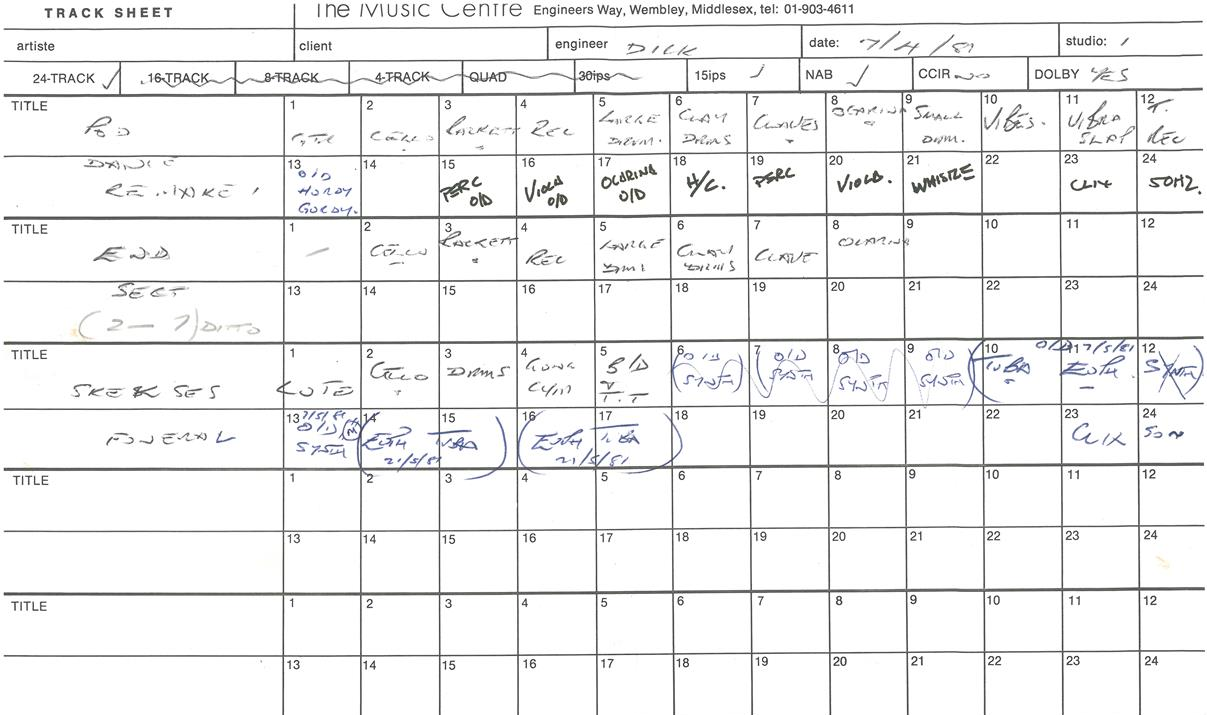 TRACK SHEET The Music Centre Engineers Way, Wembley, Middlesex, tel: 01-903-4611
artiste client engineer DICK date: 7/4/81 studio: 1
24-TRACK ✓ 16-TRACK 8-TRACK 4-TRACK QUAD 30ips 15ips ✓ NAB ✓ CCIR NO DOLBY YES
TITLE 1 2 3 4 5 6 7 8 9 10 11 12
POD GTR CELLO RACKETT REC LARGE DRUM. CLAY DRUMS CLAVES OCARINA SMALL DRM. VIBES. VIBRA SLAP T. REC
DANCE 13 14 15 16 17 18 19 20 21 22 23 24
REMAKE 1 O/D HURDY GURDY. PERC O/D VIOLA O/D OCARINA O/D H/C. PERC VIOLA. WHISTLE CLIX 50HZ.
TITLE 1 2 3 4 5 6 7 8 9 10 11 12
END — CELLO RACKETT REC LARGE DRM CLAY DRMS CLAVE OCARINA
SECT 13 14 15 16 17 18 19 20 21 22 23 24
(2 — 7) DITTO
TITLE 1 2 3 4 5 6 7 8 9 10 11 12
SKEKSES LUTE CELLO DRMS GONG CYM B/D T.T O/D SYNTH O/D SYNTH O/D SYNTH O/D SYNTH TUBA O/D 7/5/81 EUPH. SYNTH
FUNERAL 13 14 15 16 17 18 19 20 21 22 23 24
7/5/81 O/D M SYNTH EUPH TUBA 21/5/81 EUPH TUBA 21/5/81 CLIX 50N
TITLE 1 2 3 4 5 6 7 8 9 10 11 12
13 14 15 16 17 18 19 20 21 22 23 24
TITLE 1 2 3 4 5 6 7 8 9 10 11 12
13 14 15 16 17 18 19 20 21 22 23 24